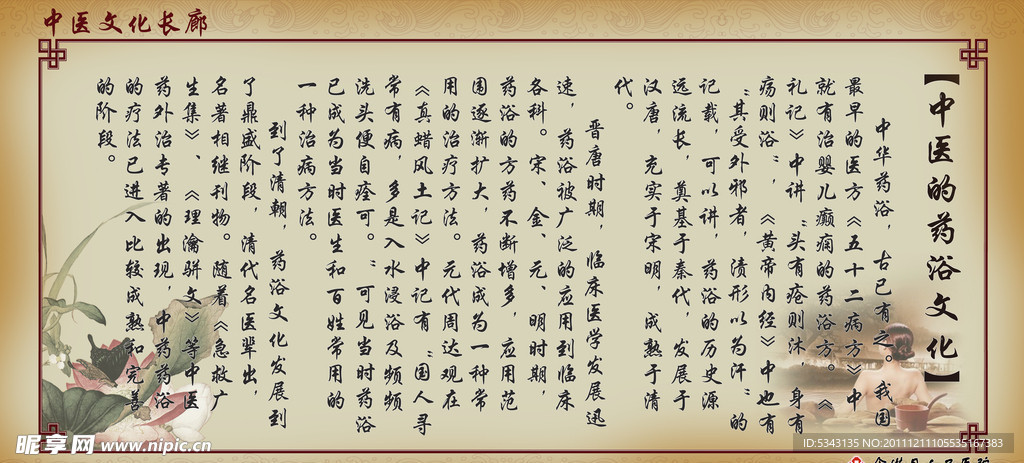 中医文化长廊
【中医的药浴文化】
中华药浴，古已有之。我国
最早的医方《五十二病方》中
就有治婴儿癫痫的药浴方。《
礼记》中讲“头有疮则沐，身有
疡则浴”，《黄帝内经》中也有
“其受外邪者，渍形以为汗”的
记载，可以讲，药浴的历史源
远流长，奠基于秦代，发展于
汉唐，充实于宋明，成熟于清
代。
晋唐时期，临床医学发展迅
速，药浴被广泛的应用到临床
各科。宋、金、元、明时期，
药浴的方药不断增多，应用范
围逐渐扩大，药浴成为一种常
用的治疗方法。元代周达观在
《真蜡风土记》中记有“国人寻
常有病，多是入水浸浴及频频
洗头便自痊可。”可见当时药浴
已成为当时医生和百姓常用的
一种治病方法。
到了清朝，药浴文化发展到
了鼎盛阶段，清代名医辈出，
名著相继刊物。随着《急救广
生集》、《理瀹骈文》等中医
药外治专著的出现，中药药浴
的疗法已进入比较成熟和完善
的阶段。
昵享网 www.nipic.cn
ID:5343135 NO:20111211105535167383